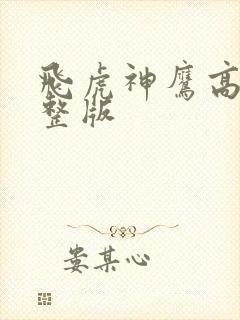 飛虎神鷹高
整版
娄某心